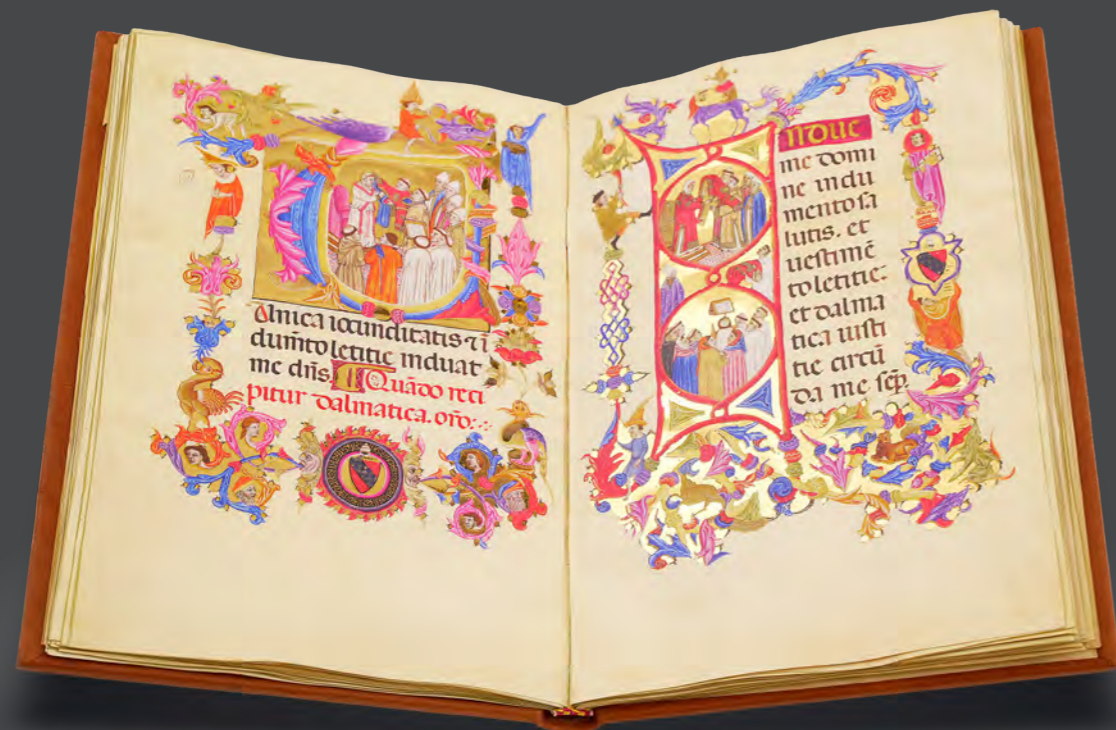 Tunica iocunditatis ⁊ ī
dumēto letitie induat
me dn̄s. Quādo reci
pitur dalmatica. oro:
INDUE
me domi
ne indu
mento sa
lutis. et
uestimē
to letitie:
et dalma
tica iusti
tie circū
da me sēp.